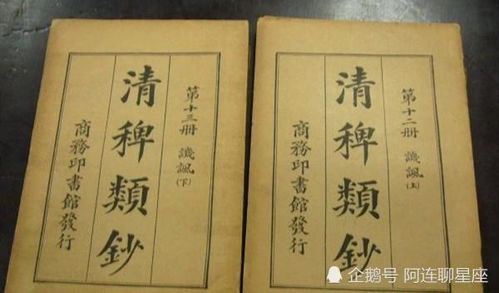 第十三册 譏諷(下)
清稗類鈔
商務印書館發行
第十二册 譏諷(上)
清稗類鈔
商務印書館發行
企鹅号 阿连聊星座